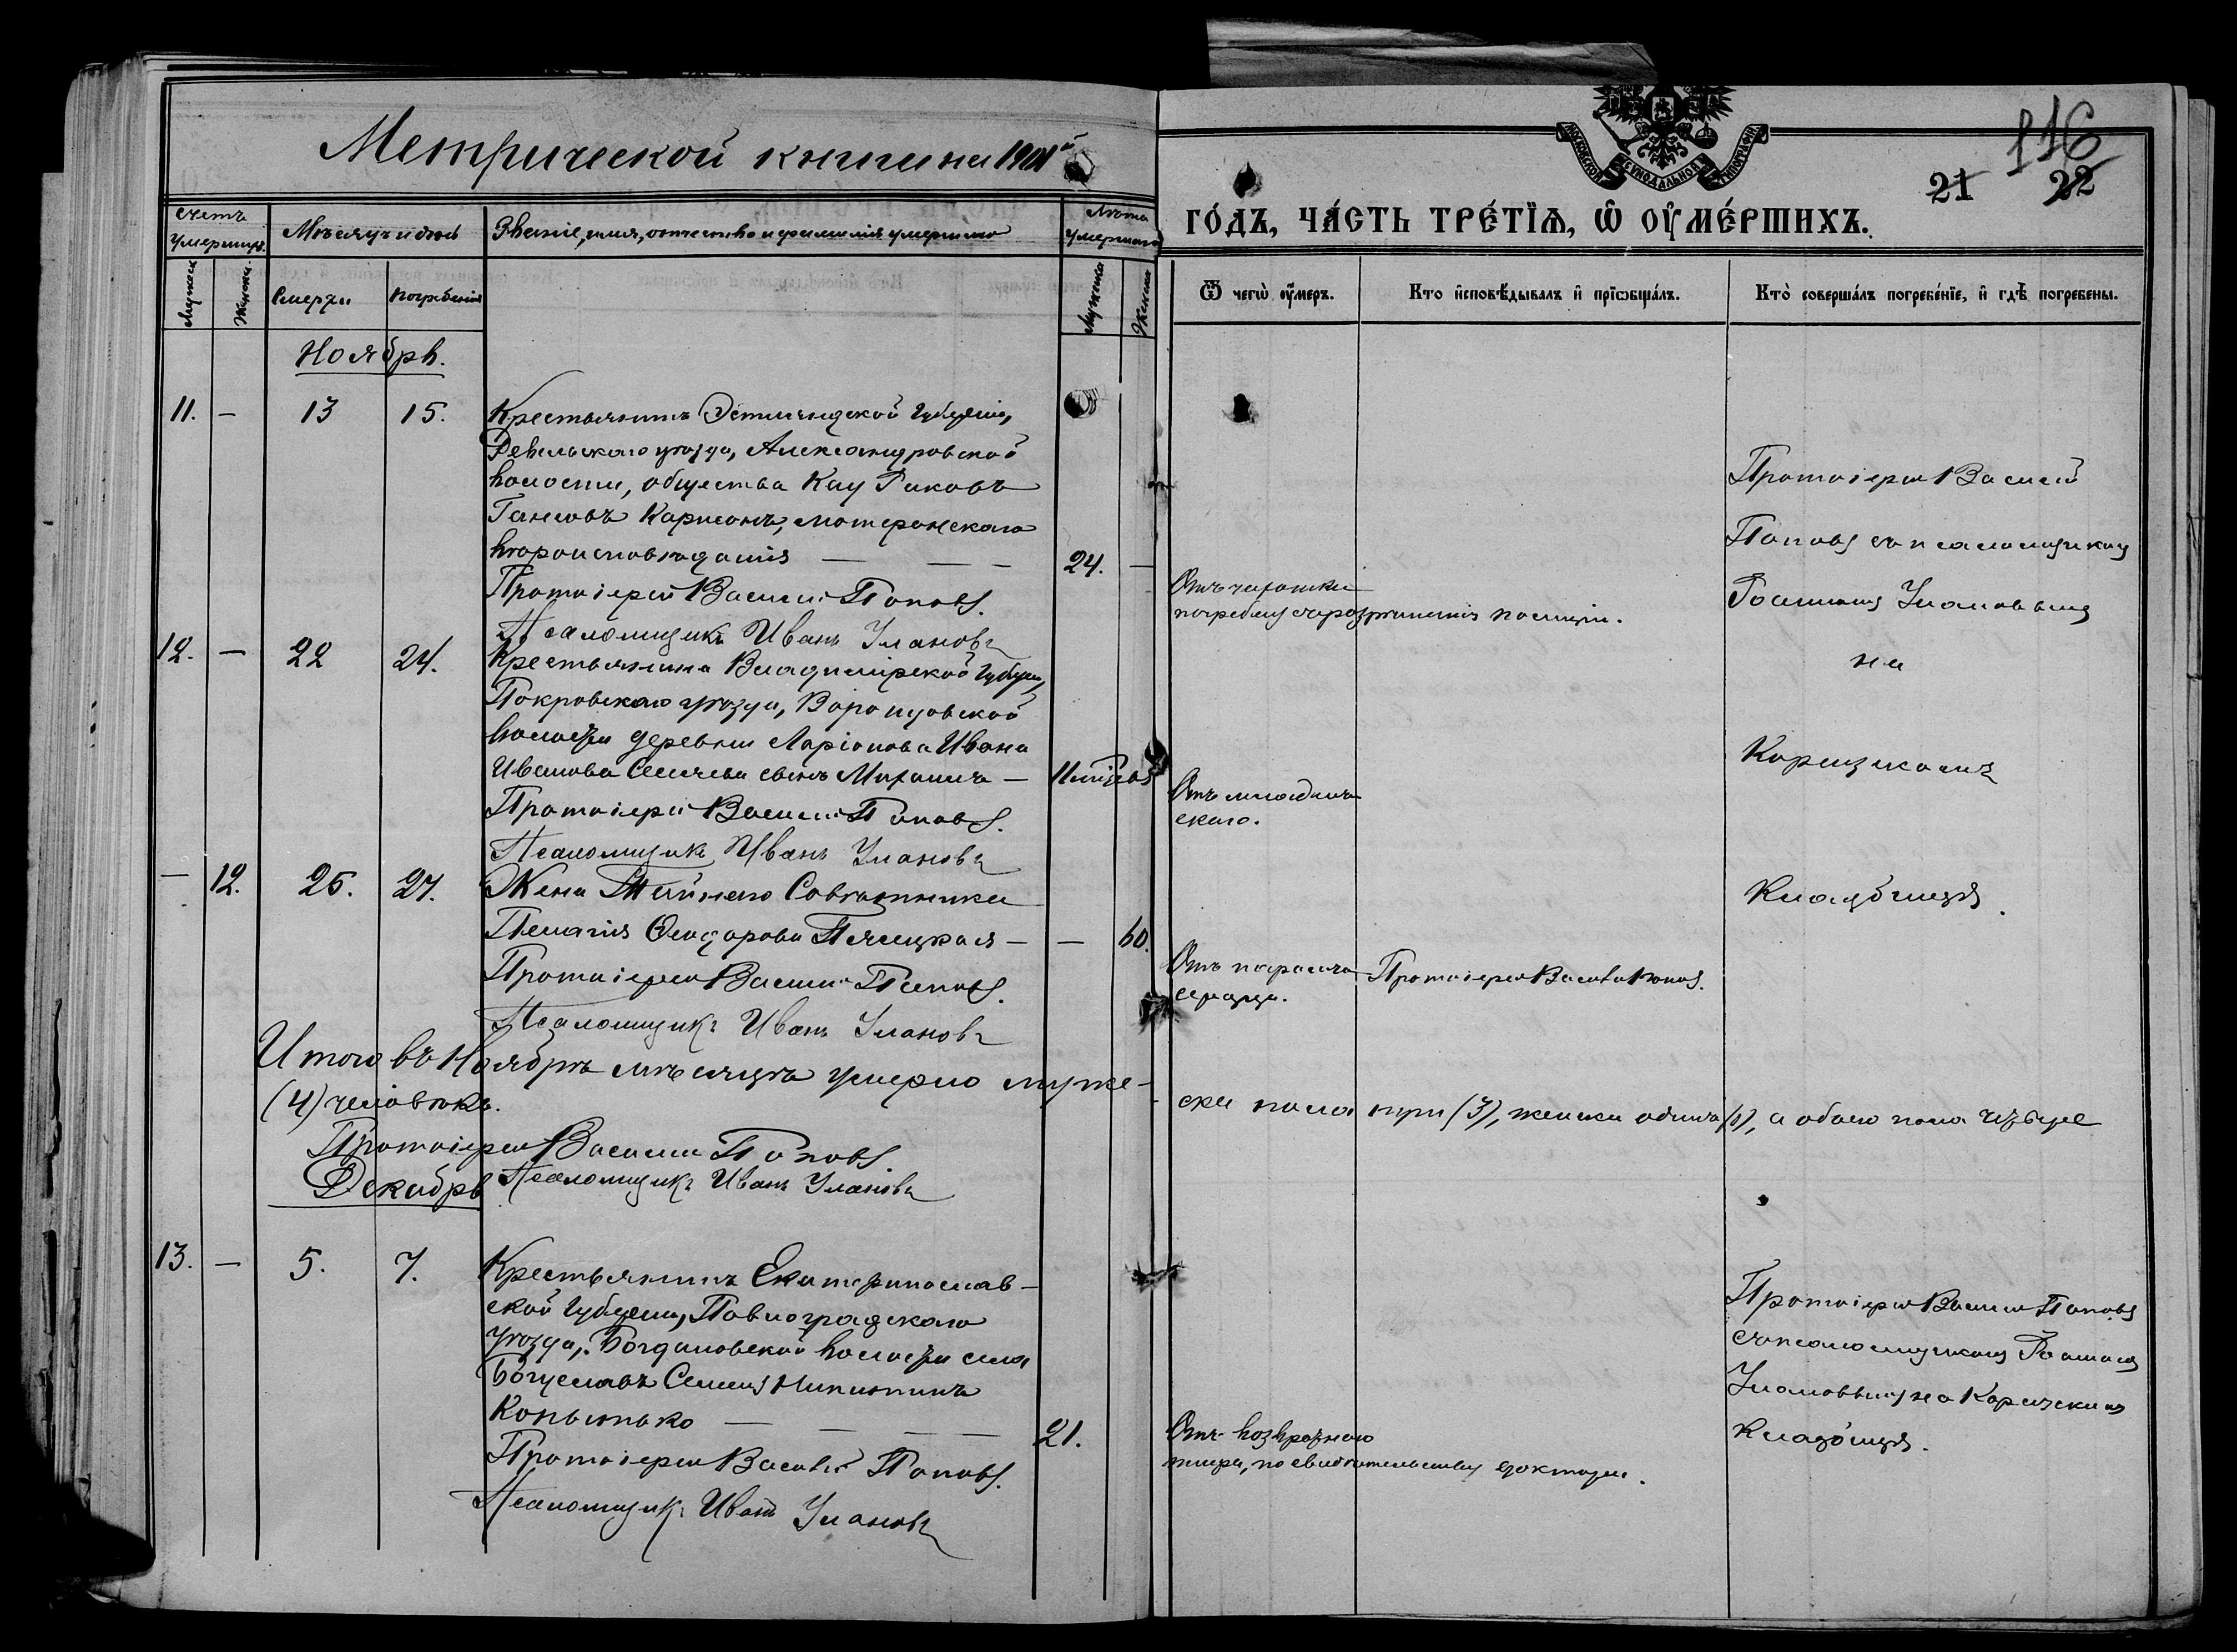 Метрической книги на 1901й
116
21 22
МОСКОВСКОЙ СѴНОДАЛЬНОЙ ТИПОГРАФІИ
ГОДЪ, ЧАСТЬ ТРЕТІѦ, Ѿ ОУМЕРШИХЪ.
Счетъ умершихъ.
Мѣсяцъ и день
Званіе, имя, отчество и фамилія умершаго
Лѣта умершаго
Мужеск
Женск.
Смерти
Погребенія
Мужеска
Женска
Ѿ чегѡ оумеръ.
Кто исповѣдывалъ и прїѡбщалъ.
Кто совершалъ погребенїе, и гдѣ погребены.
Ноябрь.
11. — 13 15.
Крестьянинъ Эстляндской губерніи,
Ревельскаго уѣзда, Александровской
волости, общества Кау Яковъ
Гансовъ Карлсонъ, лютеранскаго
вѣроисповѣданія — — — 24. —
Протоіерей Василій Поповъ.
Псаломщикъ Иванъ Улановъ
Отъ чахотки
погребенъ съ разрѣшенія полиціи.
Протоіерей Василій
Поповъ съ псаломщикомъ
Іоанномъ Улановымъ
на
12. — 22 24.
Крестьянина Владимірской губерніи,
Покровскаго уѣзда, Воронцовской
волости деревни Ларіонова Ивана
Иванова сынъ Михаилъ —
Протоіерей Василій Поповъ.
Псаломщикъ Иванъ Улановъ
Отъ младенче
скаго.
— 12. 25. 27.
Жена Тайнаго Совѣтника
Пелагія Ѳеодорова — — 60.
Протоіерей Василій Поповъ.
Псаломщикъ Иванъ Улановъ
Отъ паралича
сердца.
Протоіерей Василій Поповъ.
кладбищѣ.
Итого въ Ноябрѣ мѣсяцѣ умерло муже-
ска пола три (3), женска одна (1), а обоего пола четыре
(4) человѣкъ.
Протоіерей Василій Поповъ
Псаломщикъ Иванъ Улановъ
Декабрь
13. — 5. 7.
Крестьянинъ Екатеринослав-
ской губерніи, Павлоградскаго
уѣзда, Богдановской волости села
Богуславъ Семенъ Никитинъ
Копытько — — — 21.
Протоіерей Василій Поповъ.
Псаломщикъ Иванъ Улановъ
Отъ возвратнаго
тифа, по свидѣтельству доктора.
Протоіерей Василій Поповъ
съ псаломщикомъ Іоанномъ
Улановымъ на
кладбищѣ.